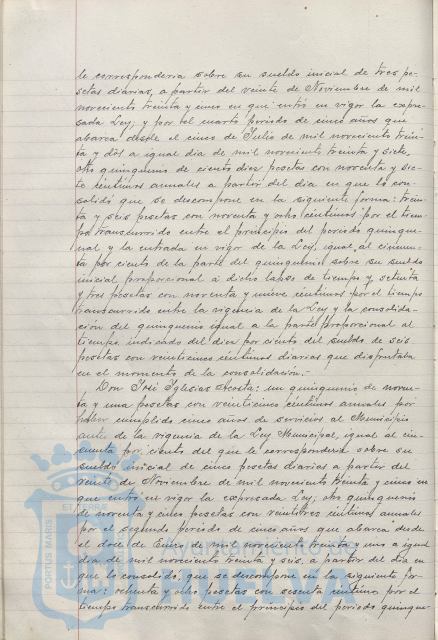 le correspondería sobre su sueldo inicial de tres pe-
setas diarias, a partir del veinte de Noviembre de mil
novecientos treinta y cinco en que entró en vigor la expre-
sada Ley; y por el cuarto periodo de cinco años que
abarca desde el cinco de Julio de mil novecientos trein-
ta y dos a igual dia de mil novecientos treinta y siete,
otro quinquenio de ciento diez pesetas con noventa y sie-
te céntimos anuales a partir del dia en que lo con-
solidó que se descompone en la siguiente forma: trein-
ta y seis pesetas con noventa y ocho céntimos por el tiem-
po transcurrido entre el principio del periodo quinque-
nal y la entrada en vigor de la Ley, igual al cincuen-
ta por ciento de la parte del quinquenio sobre su sueldo
inicial proporcional á dicho lapso de tiempo y setenta
y tres pesetas con noventa y nueve céntimos por el tiempo
transcurrido entre la vigencia de la Ley y la consolida-
ción del quinquenio igual a la parte proporcional al
tiempo indicado del diez por ciento del sueldo de seis
pesetas con veinticinco céntimos diarias que disfrutaba
en el momento de la consolidación.-
Don José Iglesias Acosta: un quinquenio de noven-
ta y una pesetas con veinticinco céntimos anuales por
haber cumplido cinco años de servicios al Municipio
antes de la vigencia de la Ley Municipal, igual al cin-
cuenta por ciento del que le correspondería sobre su
sueldo inicial de cinco pesetas diarias a partir del
veinte de Noviembre de mil novecientos treinta y cinco en
que entró en vigor la expresada Ley; otro quinquenio
de noventa y cinco pesetas con veintitres céntimos anuales
por el segundo periodo de cinco años que abarca desde
el doce de Enero de mil novecientos treinta y uno a igual
dia de mil novecientos treinta y seis, a partir del dia en
que lo consolidó, que se descompone en la siguiente for-
ma: ochenta y ocho pesetas con sesenta céntimos por el
tiempo transcurrido entre el principio del periodo quinque-
PORTUS MARIS
ET TERRÆ
Ayuntamiento de
HUELVA